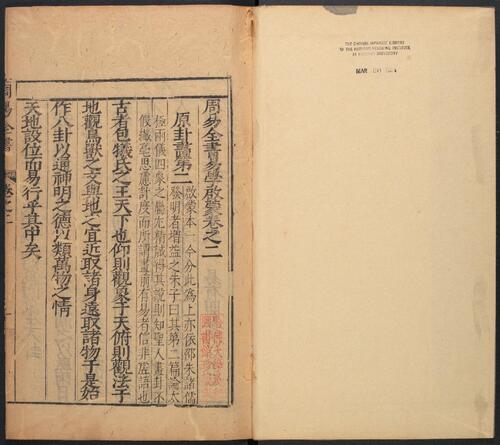 周易全書易學啟蒙卷之二
原卦畫第二
啟蒙本一今分此為上亦依邵朱諸儒
發明者增益之朱子曰其第二篇論太
極兩儀四象之屬先精誠得其說則知聖人畫卦不
假纖毫思慮計度而所謂畫前有易者信非虛語也
古者包犧氏之王天下也仰則觀象于天俯則觀法于
地觀鳥獸之文與地之宜近取諸身遠取諸物于是始
作八卦以通神明之德以類萬物之情
天地設位而易行乎其中矣
周易全書 卷之二
THE CHINESE-JAPANESE LIBRARY
OF THE HARVARD-YENCHING INSTITUTE
AT HARVARD UNIVERSITY
MAR